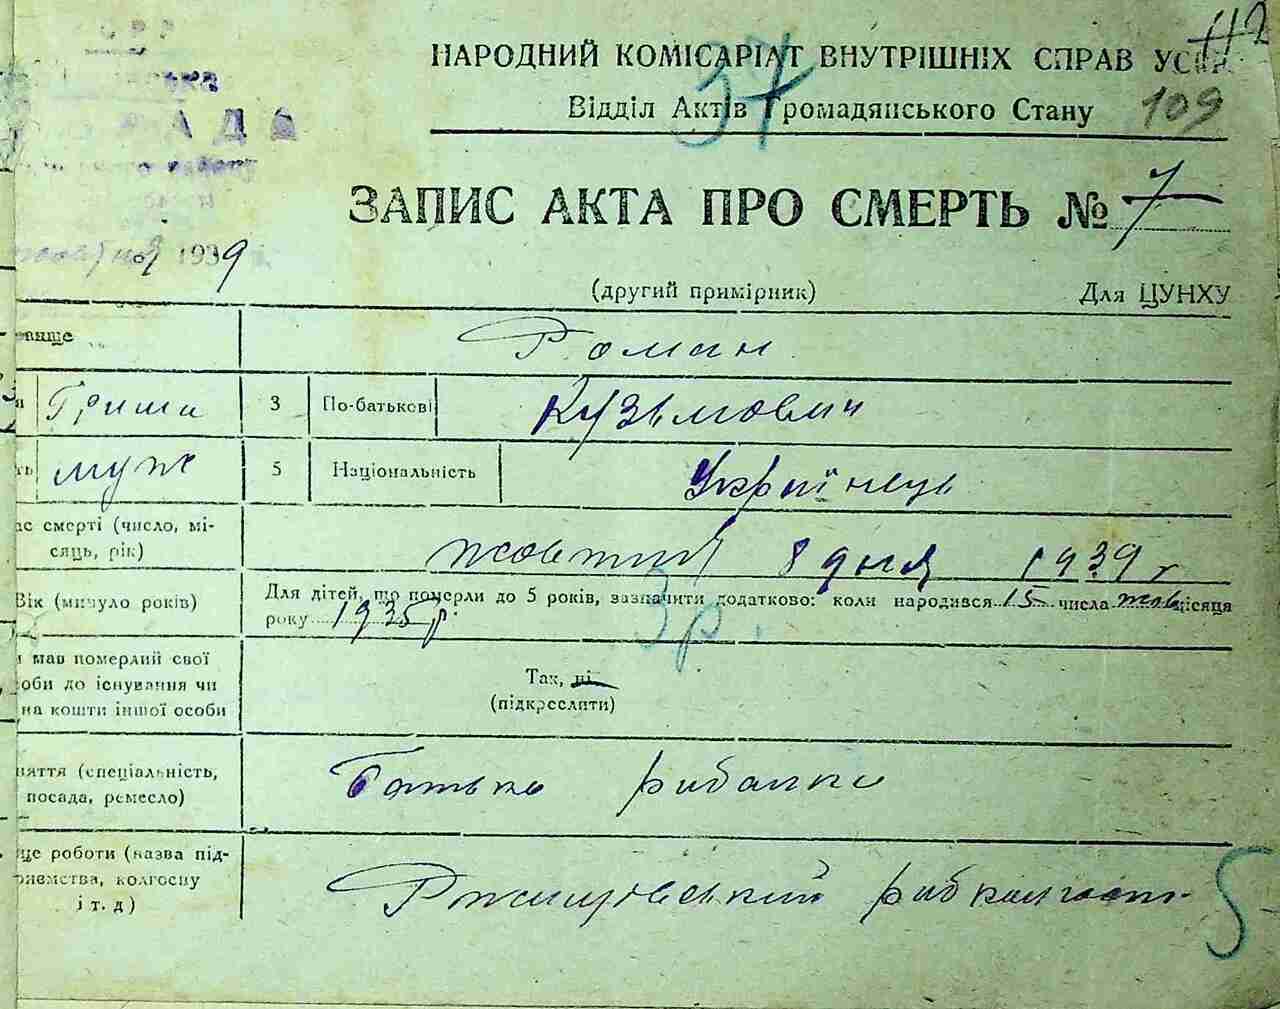 112
НАРОДНИЙ КОМІСАРІАТ ВНУТРІШНІХ СПРАВ УСРР
37
Відділ Актів Громадянського Стану 109
РАДА
ЗАПИС АКТА ПРО СМЕРТЬ № 7
1939
(другий примірник) Для ЦУНХУ
вище Роман
Гриша 3 По-батькові Кузьмович
ть муж 5 Національність Українець
ас смерті (число, мі-
сяць, рік) жовтня 8 дня 1939 г
Вік (минуло років) Для дітей, що померли до 5 років, зазначити додатково: коли народився 15 числа жов місяця
року 1935 р.
3 р.
и мав померлий свої
оби до існування чи Так, ні
на кошти іншої особи (підкреслити)
няття (спеціальність,
посада, ремесло) Батько рибалка
це роботи (назва під-
риємства, колгоспу
і т. д) Ржищовський рибколгосп
5